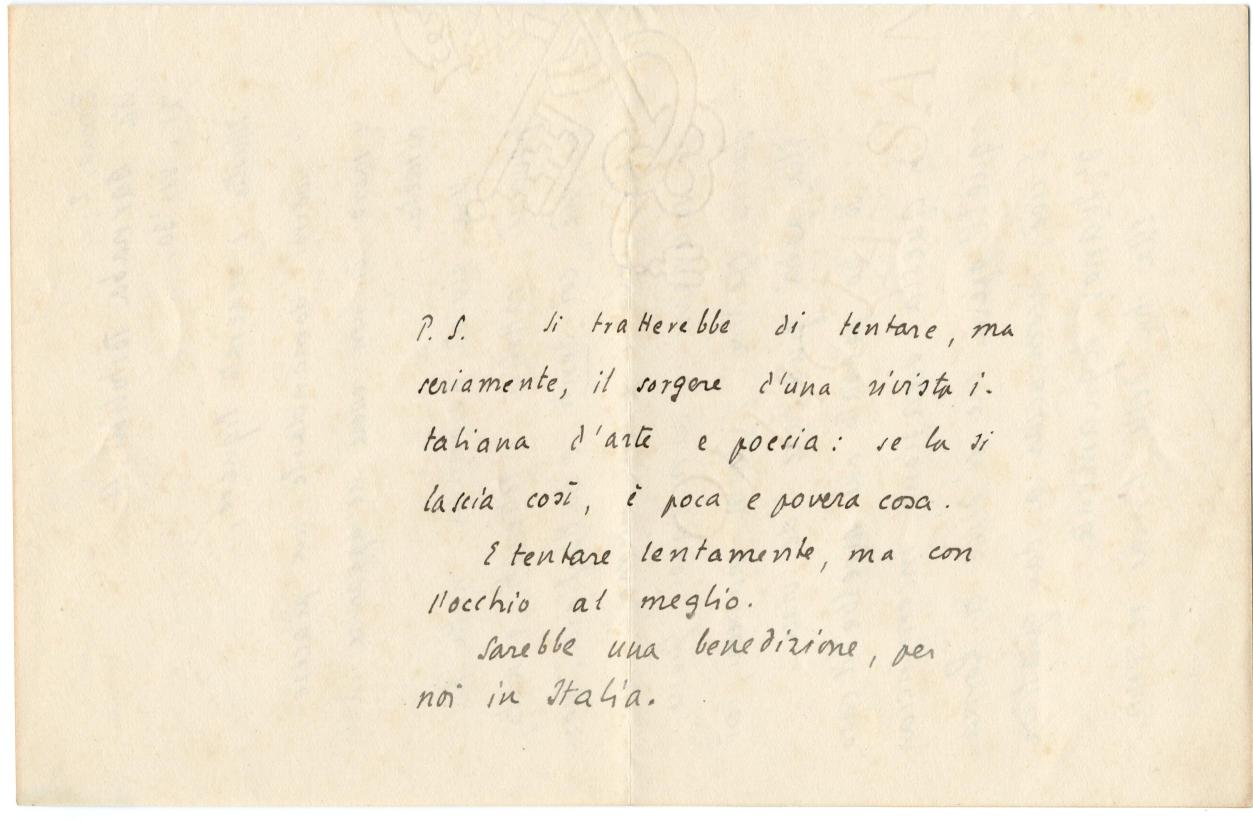 P. S. Si tratterebbe di tentare, ma
seriamente, il sorgere d'una rivista i-
taliana d'arte e poesia: se la si
lascia così, è poca e povera cosa.
E tentare lentamente, ma con
l'occhio al meglio.
Sarebbe una benedizione, per
noi in Italia.